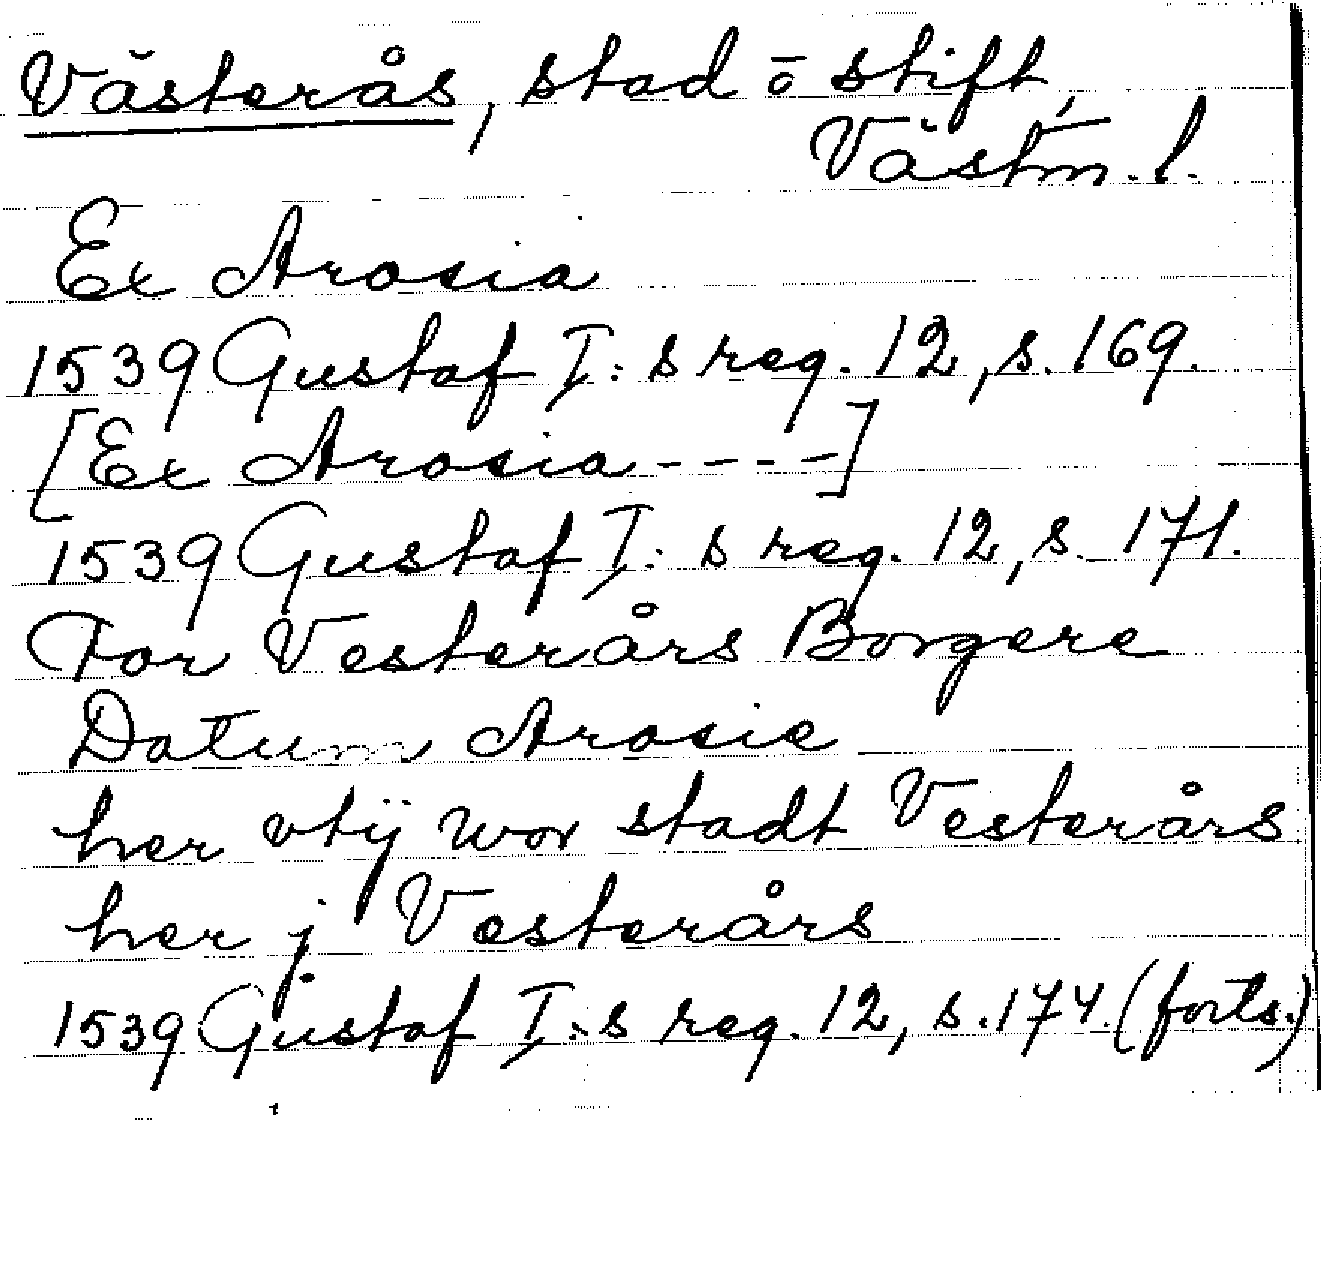 Västerås, stad o stift,
Västm. l.
Ex Arosia
1539 Gustaf I:s reg. 12, s. 169.
[Ex Arosia ----]
1539 Gustaf I:s reg. 12, s. 171.
For Vesterårs Borgere
Datum Arosie
her vtij wor stadt Vesterårs
her j Vesterårs
1539 Gustaf I:s reg. 12, s. 174. (forts.)